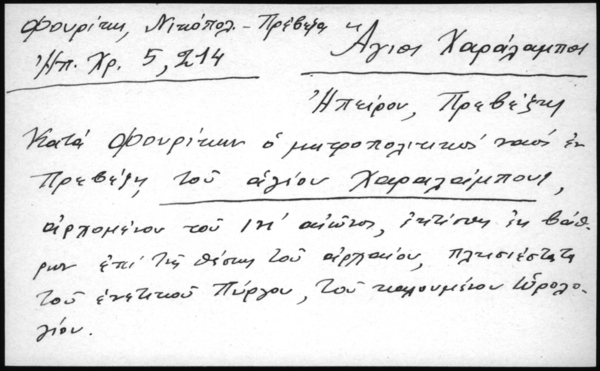 Φουρίκη, Νικόπολ. - Πρέβεζα
Ἠπ. Χρ. 5, 214
Ἅγιος Χαράλαμπος
Ἠπείρου, Πρεβέζης
Κατά Φουρίκην ὁ μητροπολιτικός ναός ἐν
Πρεβέζῃ, τοῦ ἁγίου Χαραλάμπους,
ἀρχομένου τοῦ ΙΗ' αἰῶνος, ἐκτίσθη ἐκ βάθ-
ρων ἐπί τῆς θέσεως τοῦ ἀρχαίου, πλησιέστατα
τοῦ ἐνετικοῦ Πύργου, τοῦ καλουμένου Ὡρολο-
γίου.